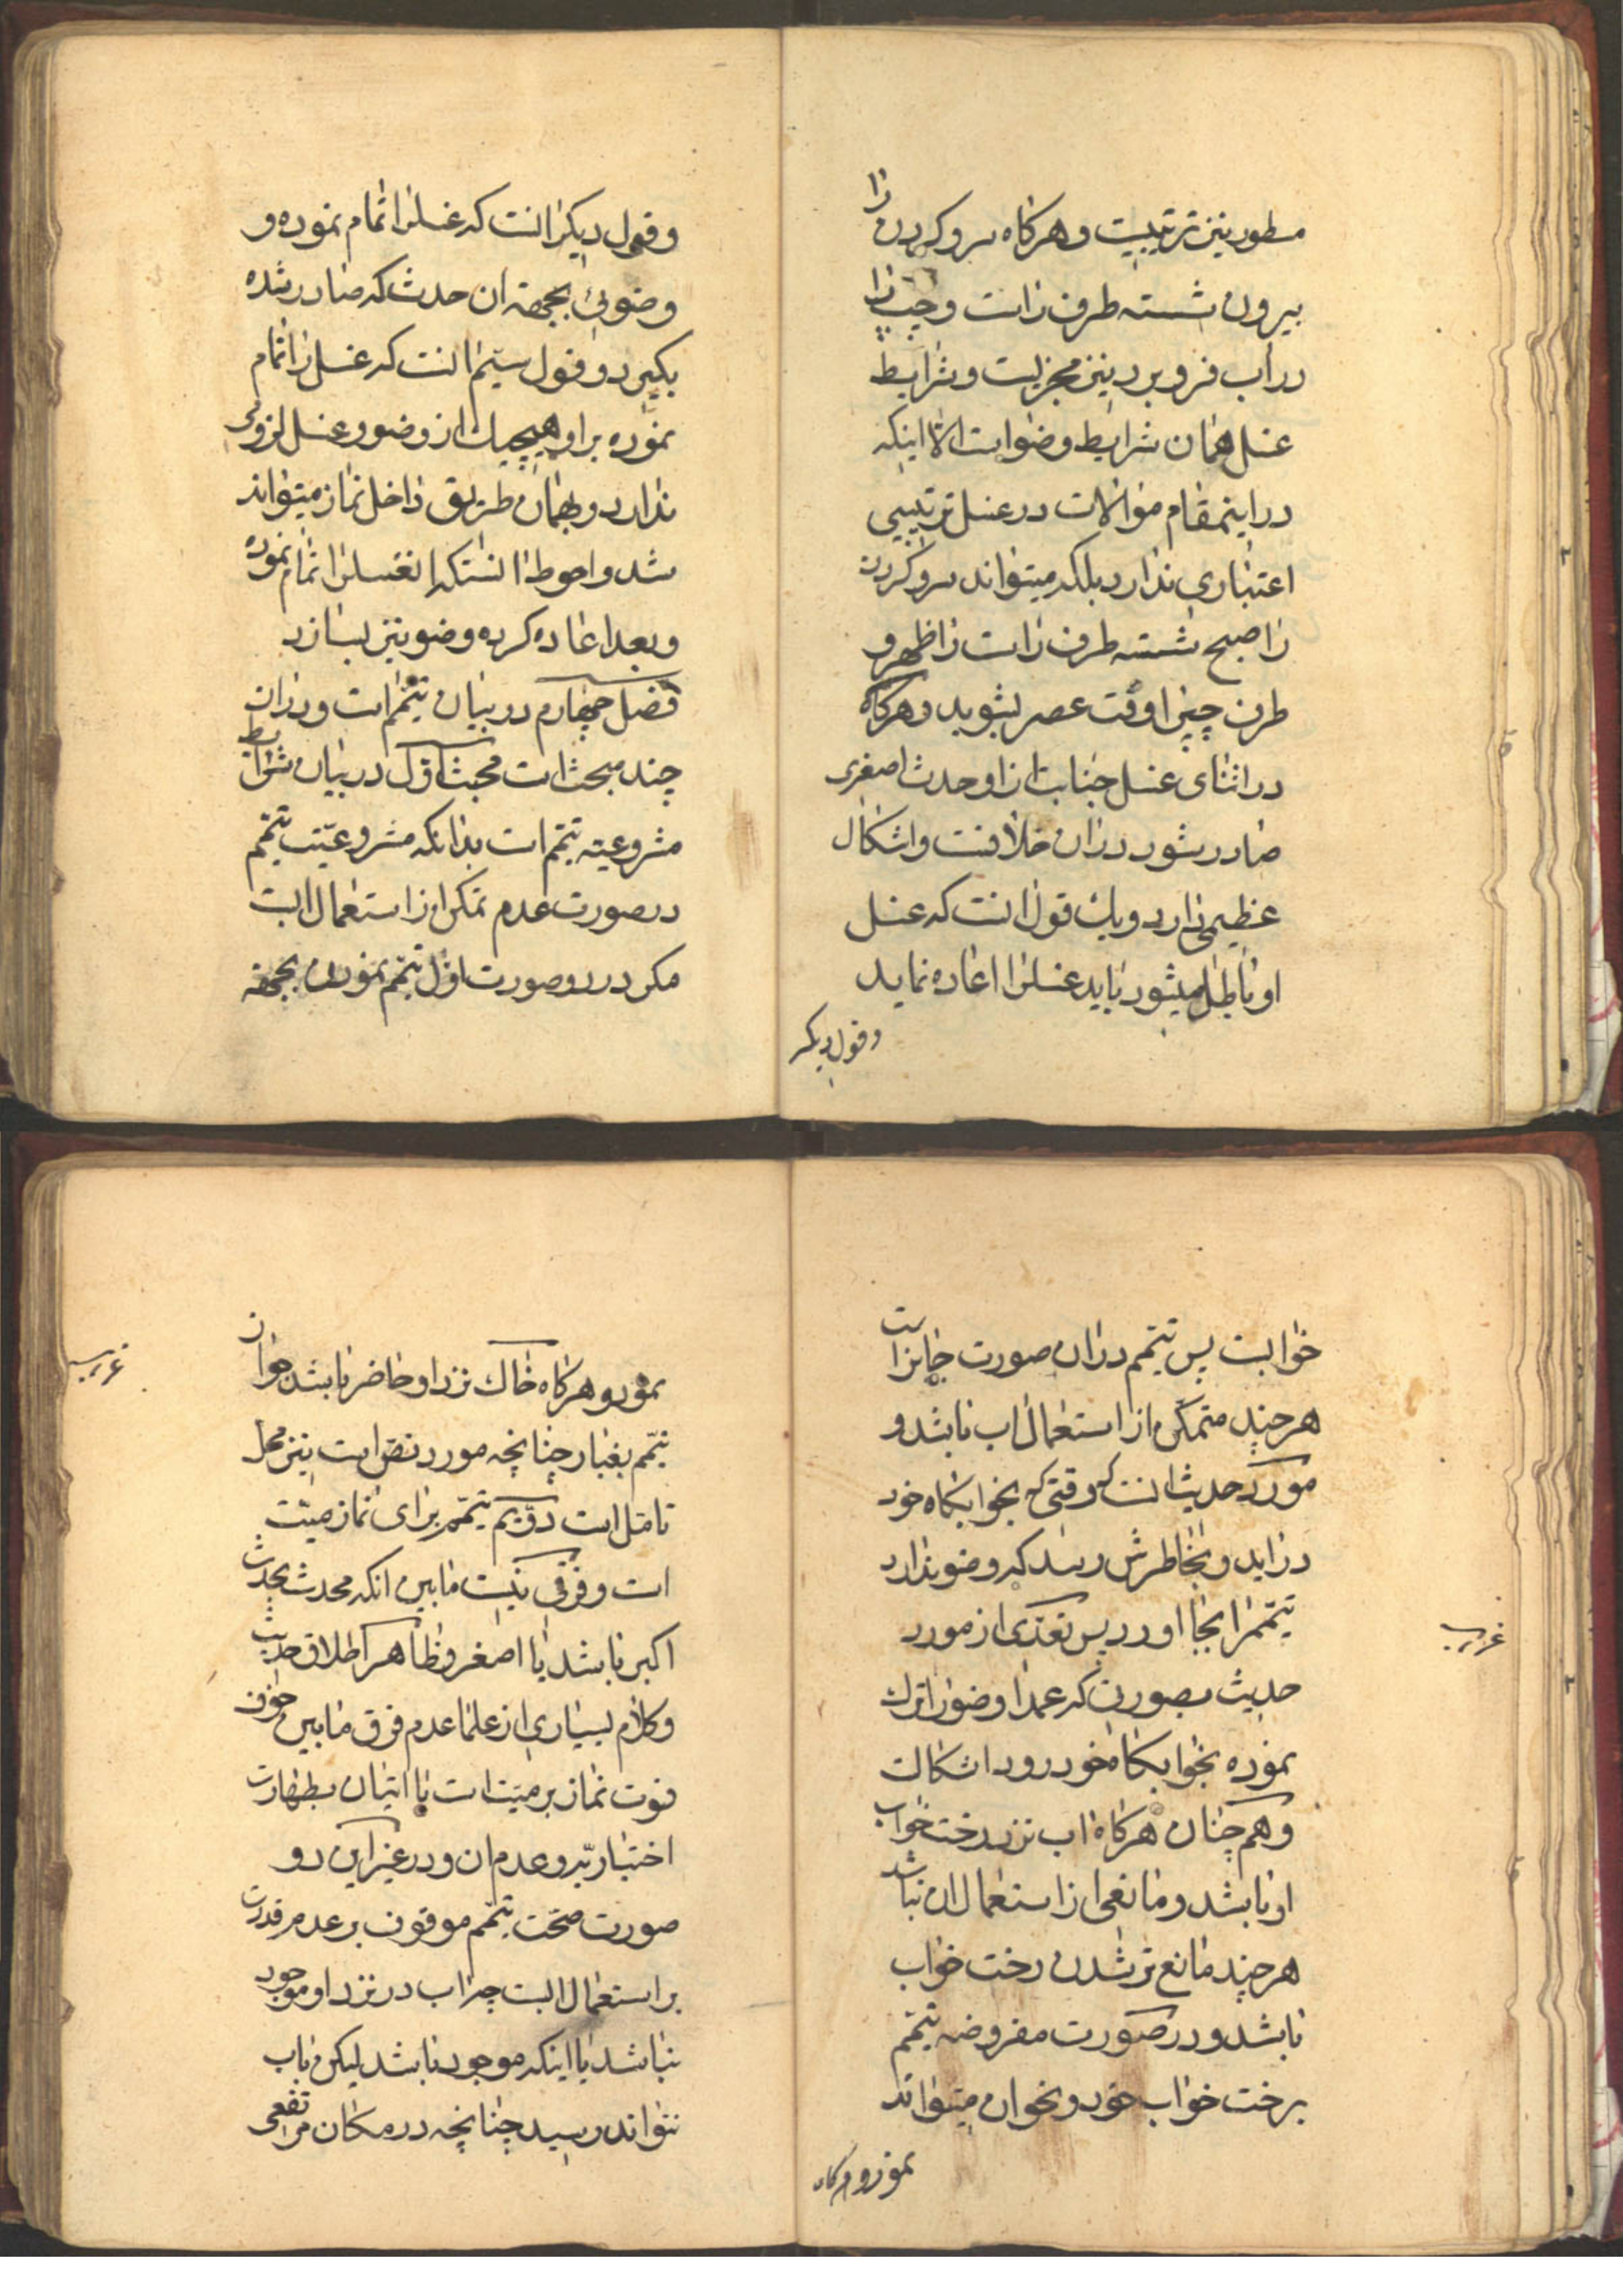 مسطور نیز ترتیبیست و هرکاه سر و کردن را
بیرون شسته طرف راست و چپ را
در آب فرو برد نیز مجزیست و شرایط
غسل همان شرایط وضو است الا اینکه
در اینمقام موالات در غسل ترتیبی
اعتباری ندارد بلکه میتواند سر و کردن
را صبح شسته طرف راست را ظهر و
طرف چپ را وقت عصر بشوید و هرکاه
در اثنای غسل جنابت از او حدث اصغری
صادر شود در ان خلافست و اشکال
عظیمی دارد و یک قول انست که غسل
او باطل میشود باید غسلرا اعاده نماید
و قول دیکر
و قول دیکر انست که غسلرا اتمام نموده و
وضوئی بجهة ان حدث که صادر شده
بکیرد و قول سیم انست که غسل را اتمام
نموده بر او هیچیک از وضو و غسل لزومی
ندارد و بهمان طریق داخل نماز میتواند
شد و احوط انستکه انغسلرا اتمام نموده
و بعد اعاده کرده وضو نیز بسازد
فصل چهارم در بیان تیمم است و در ان
چند مبحث است مبحث اول در بیان شرایط
مشروعیة تیمم است بدانکه مشروعیت تیمم
در صورت عدم تمکن از استعمال ابست
مکر در دو صورت اول تیمم نمودن بجهة
خوابست پس تیمم در ان صورت جایز است
هر چند متمکن از استعمال اب باشد و
مورد حدیث انست که وقتی که بخوابکاه خود
در اید و بخاطرش رسد که وضو ندارد
تیمم را بجا اورد پس تعدی از مورد
غریب
حدیث بصورتی که عمدا وضو را ترک
نموده بخوابکاه خود رود اشکالست
و هم چنان هرکاه اب نزد رخت خواب
او باشد و مانعی از استعمال ان نباشد
هر چند مانع تر شدن رخت خواب
باشد و در صورت مفروضه تیمم
برخت خواب خود و نحو ان میتواند
نمود و هرکاه
نمود و هرکاه خاک نزد او حاضر باشد جواز
غریب
تیمم بغبار چنانچه مورد نص است نیز محل
تامل است دویم تیمم برای نماز میت
است و فرقی نیست مابین انکه محدث بحدث
اکبر باشد یا اصغر و ظاهر اطلاق حدیث
و کلام بسیاری از علما عدم فرق مابین خوف
فوت نماز بر میت است با اتیان بطهارت
اختیاریه و عدم ان و در غیر این دو
صورت صحت تیمم موقوف بر عدم قدرت
بر استعمال ابست چه اب در نزد او موجود
نباشد یا اینکه موجود باشد لیکن باب
نتواند رسید چنانچه در مکان مرتفعی